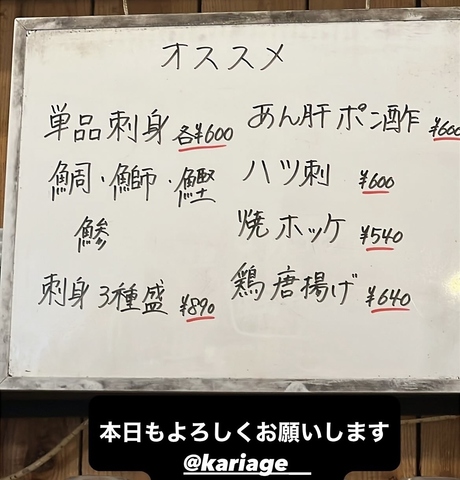 オススメ
単品刺身 各¥600
鯛・鰤・鰹
鯵
刺身3種盛 ¥890
あん肝ポン酢 ¥600
ハツ刺 ¥600
焼ホッケ ¥540
鶏唐揚げ ¥640
本日もよろしくお願いします
@kariage__